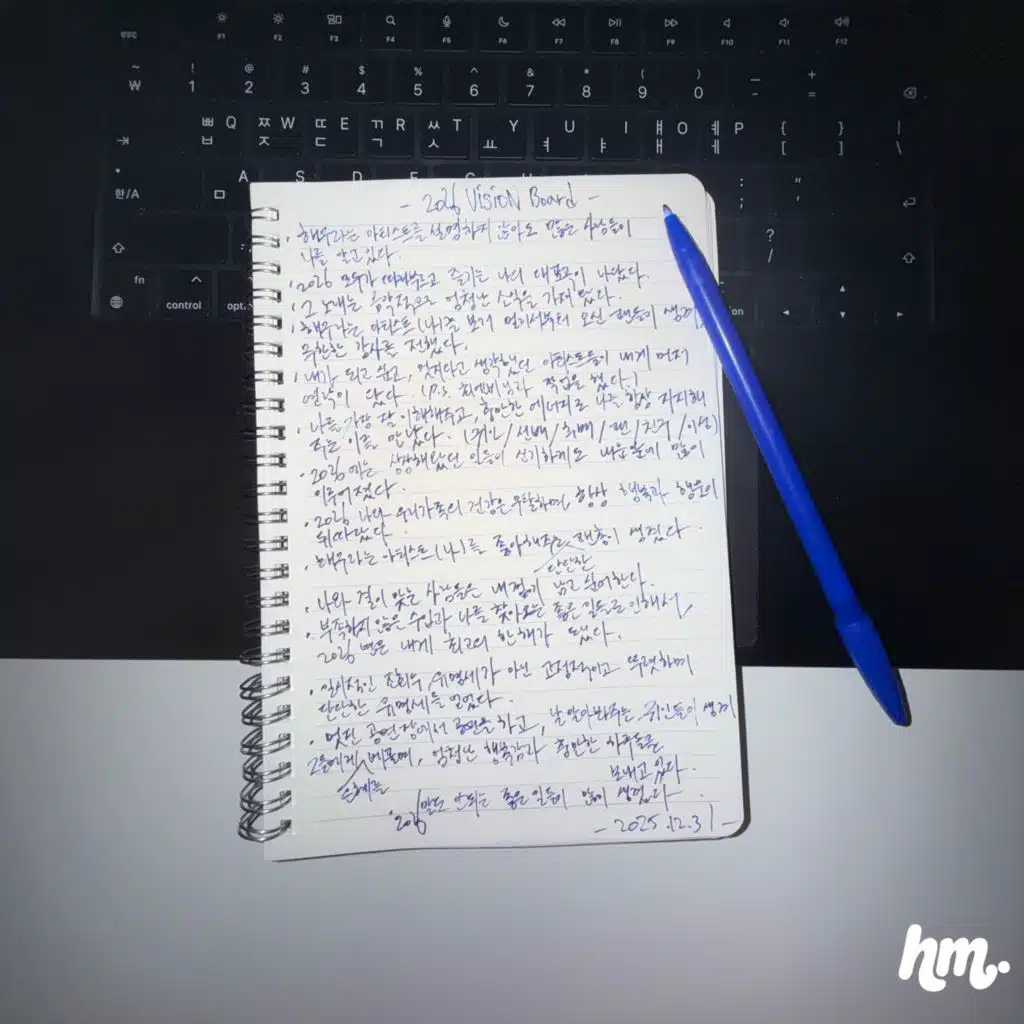 - 2026 VISION Board -
· 해우라는 아티스트를 설명하지 않아도 많은 사람들이
나를 알고있다.
· 2026 모두가 따라부르고 즐기는 나의 대표곡이 나왔다.
· 그 노래는 음악적으로 엄청난 수익을 가져왔다.
· 해우라는 아티스트(나)를 보러 멀리서부터 오신 팬들이 생겨,
무한한 감사를 전했다.
· 내가 되고 싶고, 멋지다고 생각했던 아티스트들이 내게 먼저
연락이 왔다. (P.S. 작업을 했다.)
· 나를 가장 잘 이해해주고, 충만한 에너지로 나를 항상 지지해
주는 이를 만났다. (귀인/선배/후배/팬/친구/이성)
· 2026에는 상상해왔던 일들이 신기하게도 내 눈앞에 많이
이루어졌다.
· 2026 나와 우리가족의 건강은 무탈하며, 항상 행복과 행운이
뒤따랐다.
· 해우라는 아티스트(나)를 좋아해주는 팬층이 생겼다.
단단한
· 나와 결이 맞는 사람들은 내 곁에 남고 싶어한다.
· 부족하지 않은 수입과 나를 찾아오는 좋은 일들로 인해서,
2026년은 내게 최고의 한 해가 됐다.
· 일시적인 조회수, 유명세가 아닌 고정적이고 뚜렷하며
단단한 유명세를 얻었다.
· 멋진 공연장에서 공연을 하고, 날 알아봐주는 귀인들이 생겨
그들에게 베풀며, 엄청난 행복감과 충만한 하루들을
은혜를 보내고 있다.
2026 말도 안되는 좋은 일들이 많이 생겼다.
- 2025.12.31 -
esc
F1 F2 F3 F4 F5 F6 F7 F8 F9 F10 F11 F12
~ ₩ ! 1 @ 2 # 3 $ 4 % 5 ^ 6 & 7 * 8 ( 9 ) 0 _ - + =
ㅃ ㅂ Q ㅉ ㅈ W ㄸ ㄷ E ㄲ ㄱ R ㅆ ㅅ T ㅛ Y ㅕ U ㅑ I ㅒ ㅐ O ㅖ ㅔ P { [ } ] | \
한/A A ㅁ S D F G : ; " '
? /
fn control
hm.